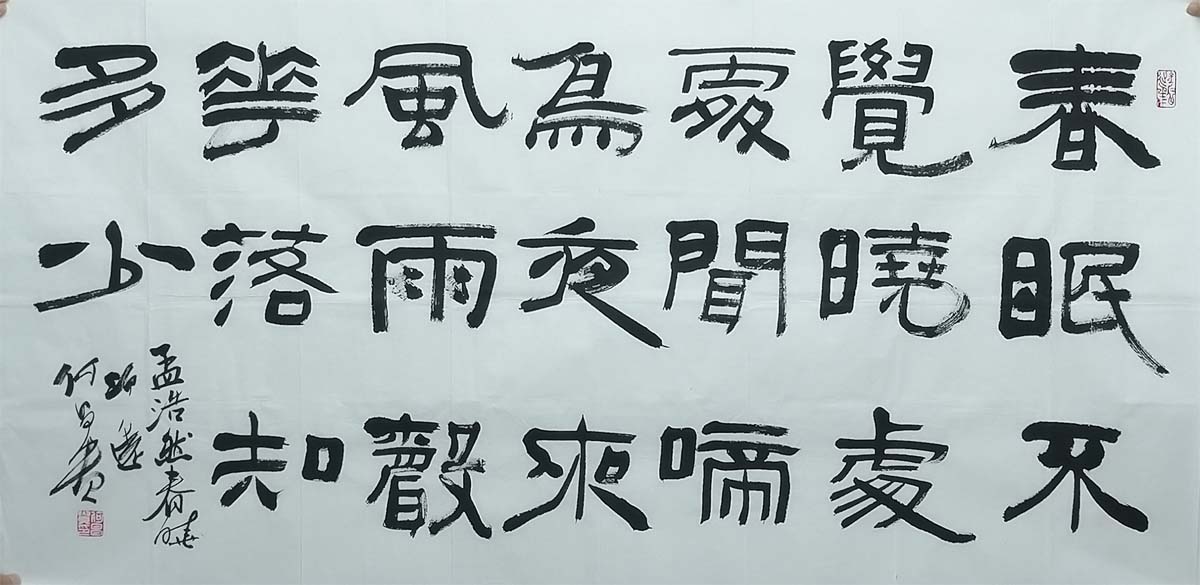 春眠不
覺曉處
處聞啼
鳥夜來
風雨聲
華落知
多少
孟浩然春曉
何